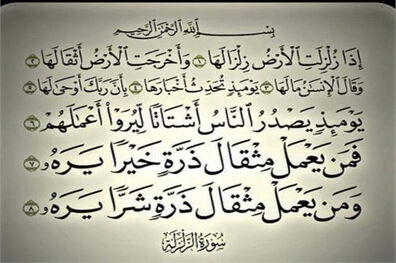 بِسْمِ ٱللَّهِ ٱلرَّحْمَٰنِ ٱلرَّحِيمِ
إِذَا زُلْزِلَتِ ٱلْأَرْضُ زِلْزَالَهَا ١ وَأَخْرَجَتِ ٱلْأَرْضُ أَثْقَالَهَا ٢
وَقَالَ ٱلْإِنسَٰنُ مَا لَهَا ٣ يَوْمَئِذٍ تُحَدِّثُ أَخْبَارَهَا ٤ بِأَنَّ رَبَّكَ أَوْحَىٰ لَهَا ٥
يَوْمَئِذٍ يَصْدُرُ ٱلنَّاسُ أَشْتَاتًا لِّيُرَوْا۟ أَعْمَٰلَهُمْ ٦
فَمَن يَعْمَلْ مِثْقَالَ ذَرَّةٍ خَيْرًا يَرَهُۥ ٧
وَمَن يَعْمَلْ مِثْقَالَ ذَرَّةٍ شَرًّا يَرَهُۥ ٨
سُورَةُ ٱلزَّلْزَلَةِ